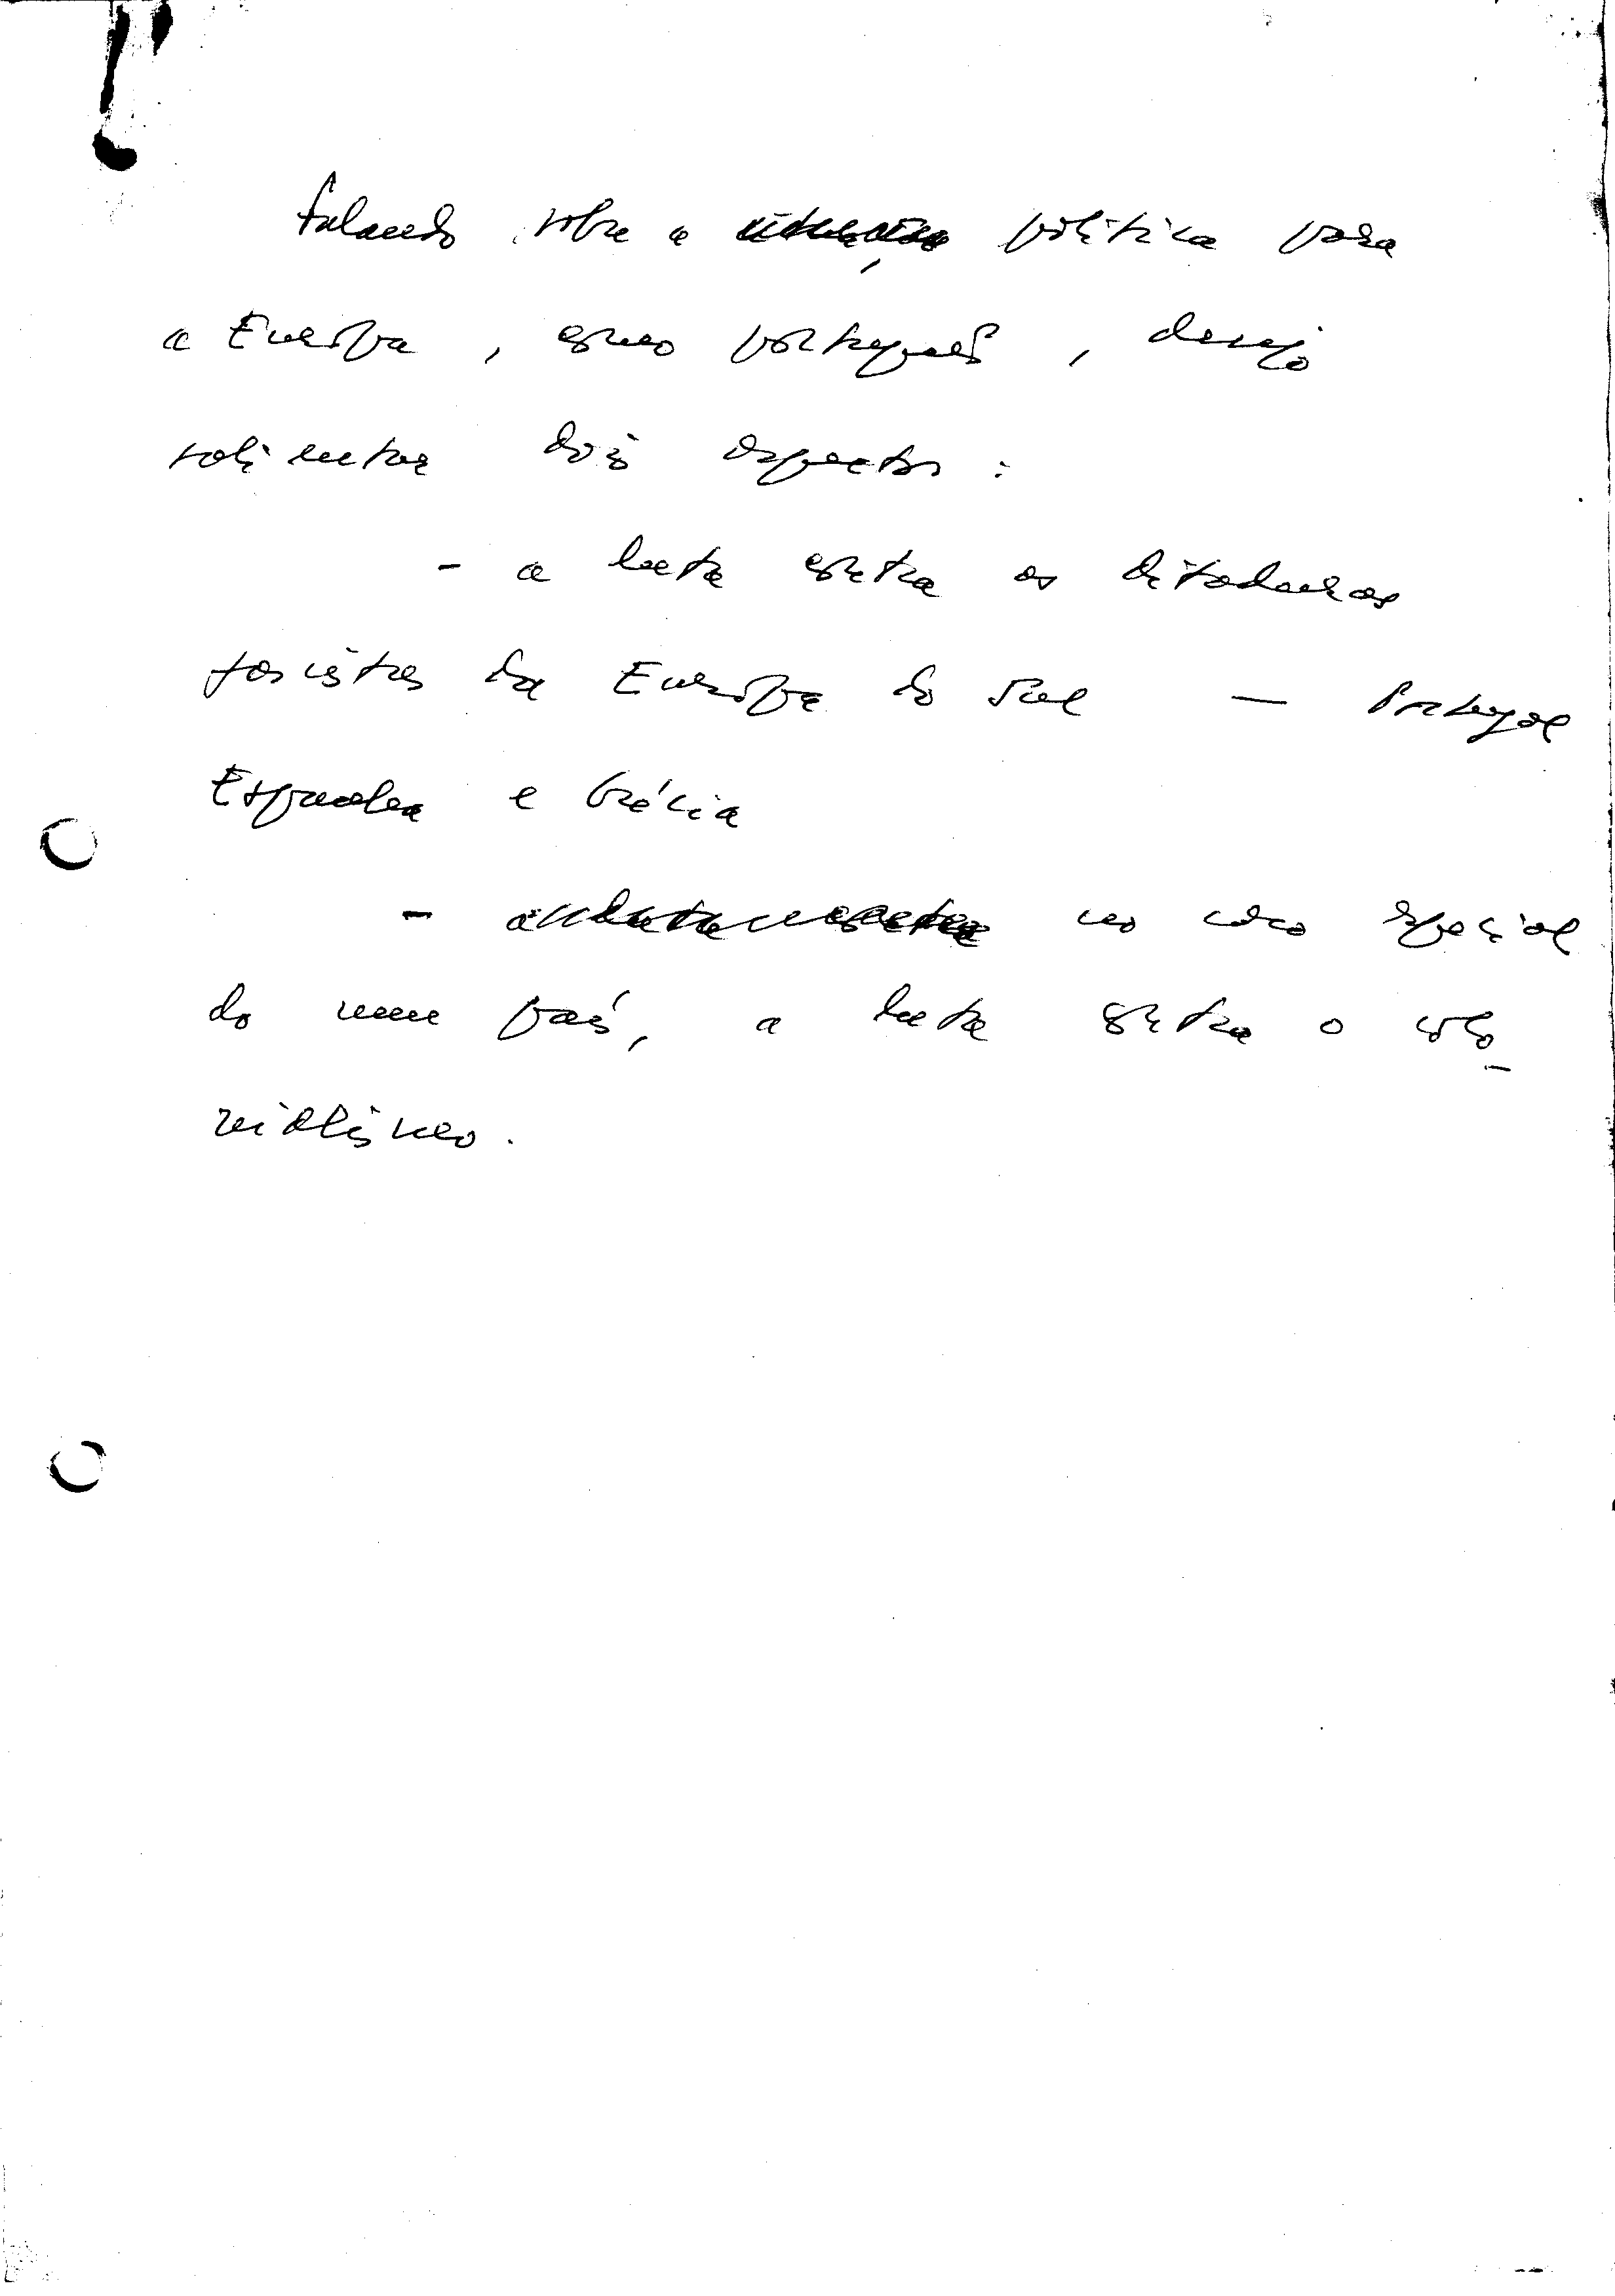 Falando sobre a política para
a Europa, como português, desejo
salientar dois aspectos:
- a luta contra as ditaduras
fascistas da Europa do Sul — Portugal
Espanha e Grécia
- no caso especial
do meu país, a luta contra o colo-
nialismo.